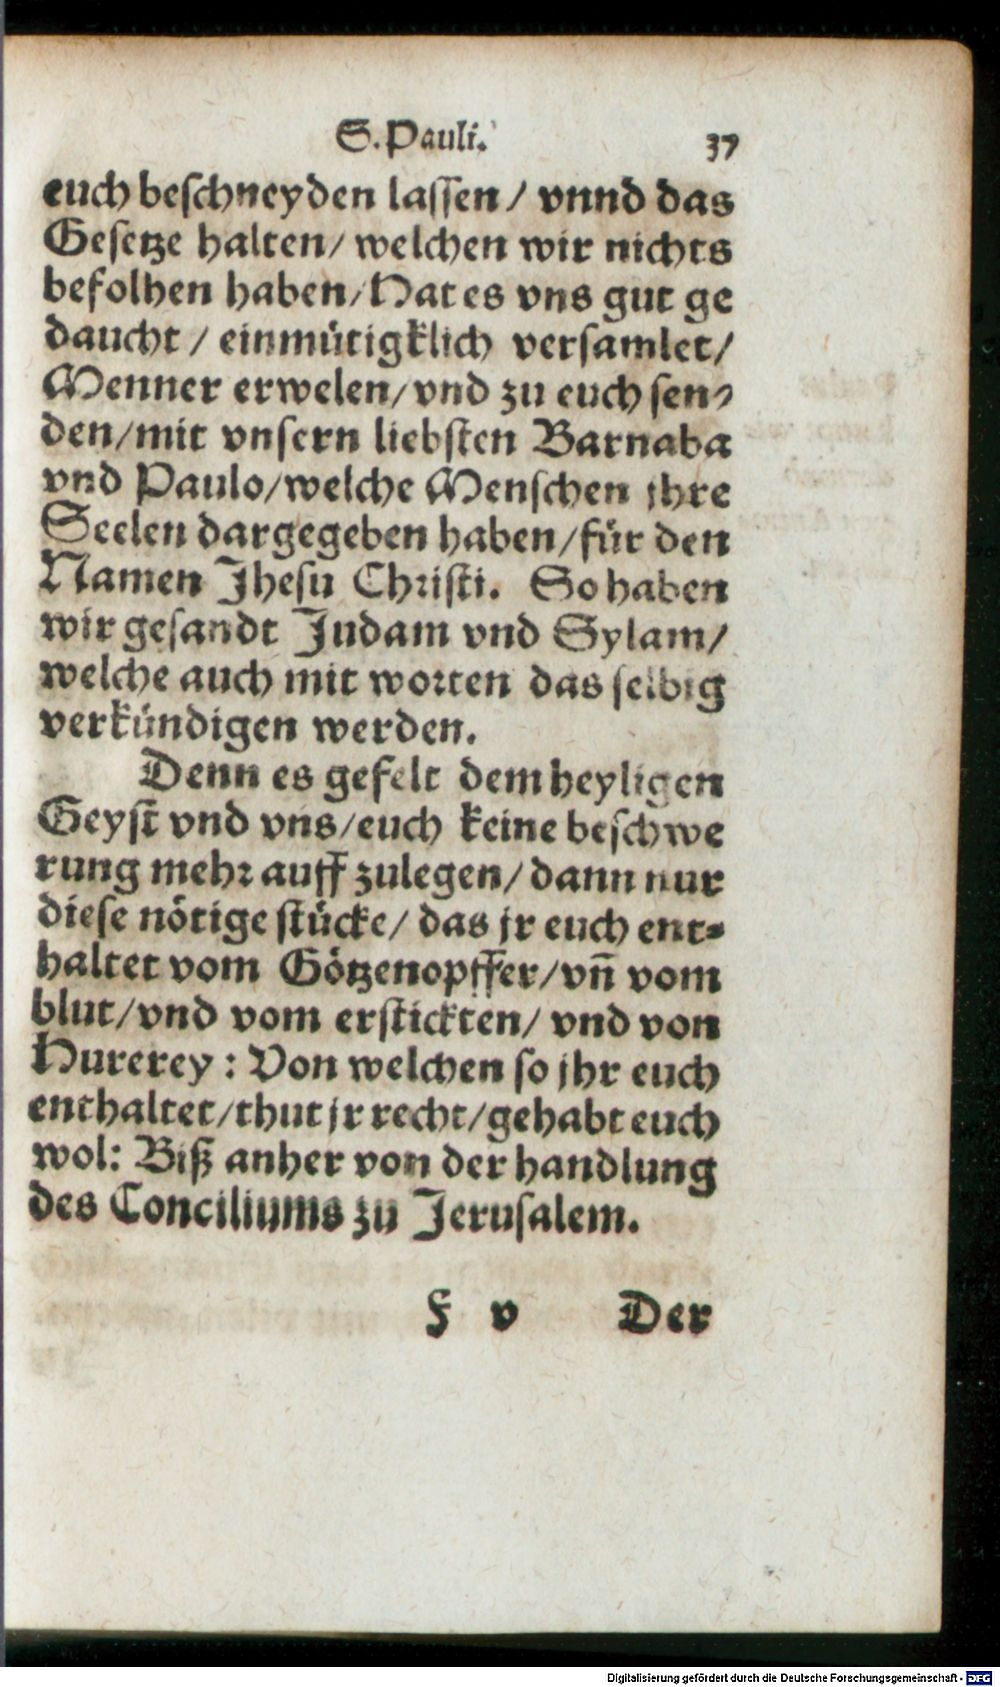 S. Pauli. 37
euch beschneyden lassen / vnnd das
Gesetze halten / welchen wir nichts
befolhen haben / Hat es vns gut ge
daucht / einmütigklich versamlet /
Menner erwelen / vnd zu euch sen⸗
den / mit vnsern liebsten Barnaba
vnd Paulo / welche Menschen jhre
Seelen dargegeben haben / für den
Namen Jhesu Christi. So haben
wir gesandt Judam vnd Sylam /
welche auch mit worten das selbig
verkündigen werden.
Denn es gefelt dem heyligen
Geyst vnd vns / euch keine beschwe
rung mehr auff zulegen / dann nur
diese nötige stücke / das jr euch ent⸗
haltet vom Götzenopffer / vñ vom
blut / vnd vom erstickten / vnd von
Hurerey : Von welchen so jhr euch
enthaltet / thut jr recht / gehabt euch
wol: Biß anher von der handlung
des Conciliums zu Jerusalem.
F v Der
Digitalisierung gefördert durch die Deutsche Forschungsgemeinschaft - DFG